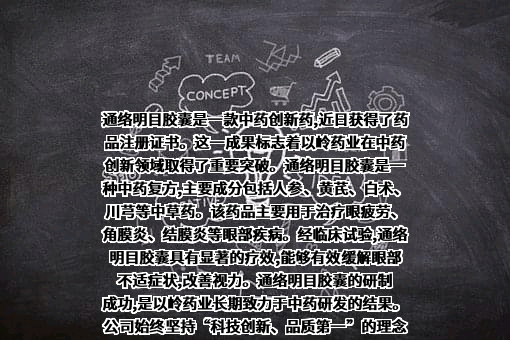 TEAM
CONCEPT
通络明目胶囊是一款中药创新药,近日获得了药
品注册证书。这一成果标志着以岭药业在中药
创新领域取得了重要突破。通络明目胶囊是一
种中药复方,主要成分包括人参、黄芪、白术、
川芎等中草药。该药品主要用于治疗眼疲劳、
角膜炎、结膜炎等眼部疾病。经临床试验,通络
明目胶囊具有显著的疗效,能够有效缓解眼部
不适症状,改善视力。通络明目胶囊的研制
成功,是以岭药业长期致力于中药研发的结果。
公司始终坚持“科技创新、品质第一”的理念